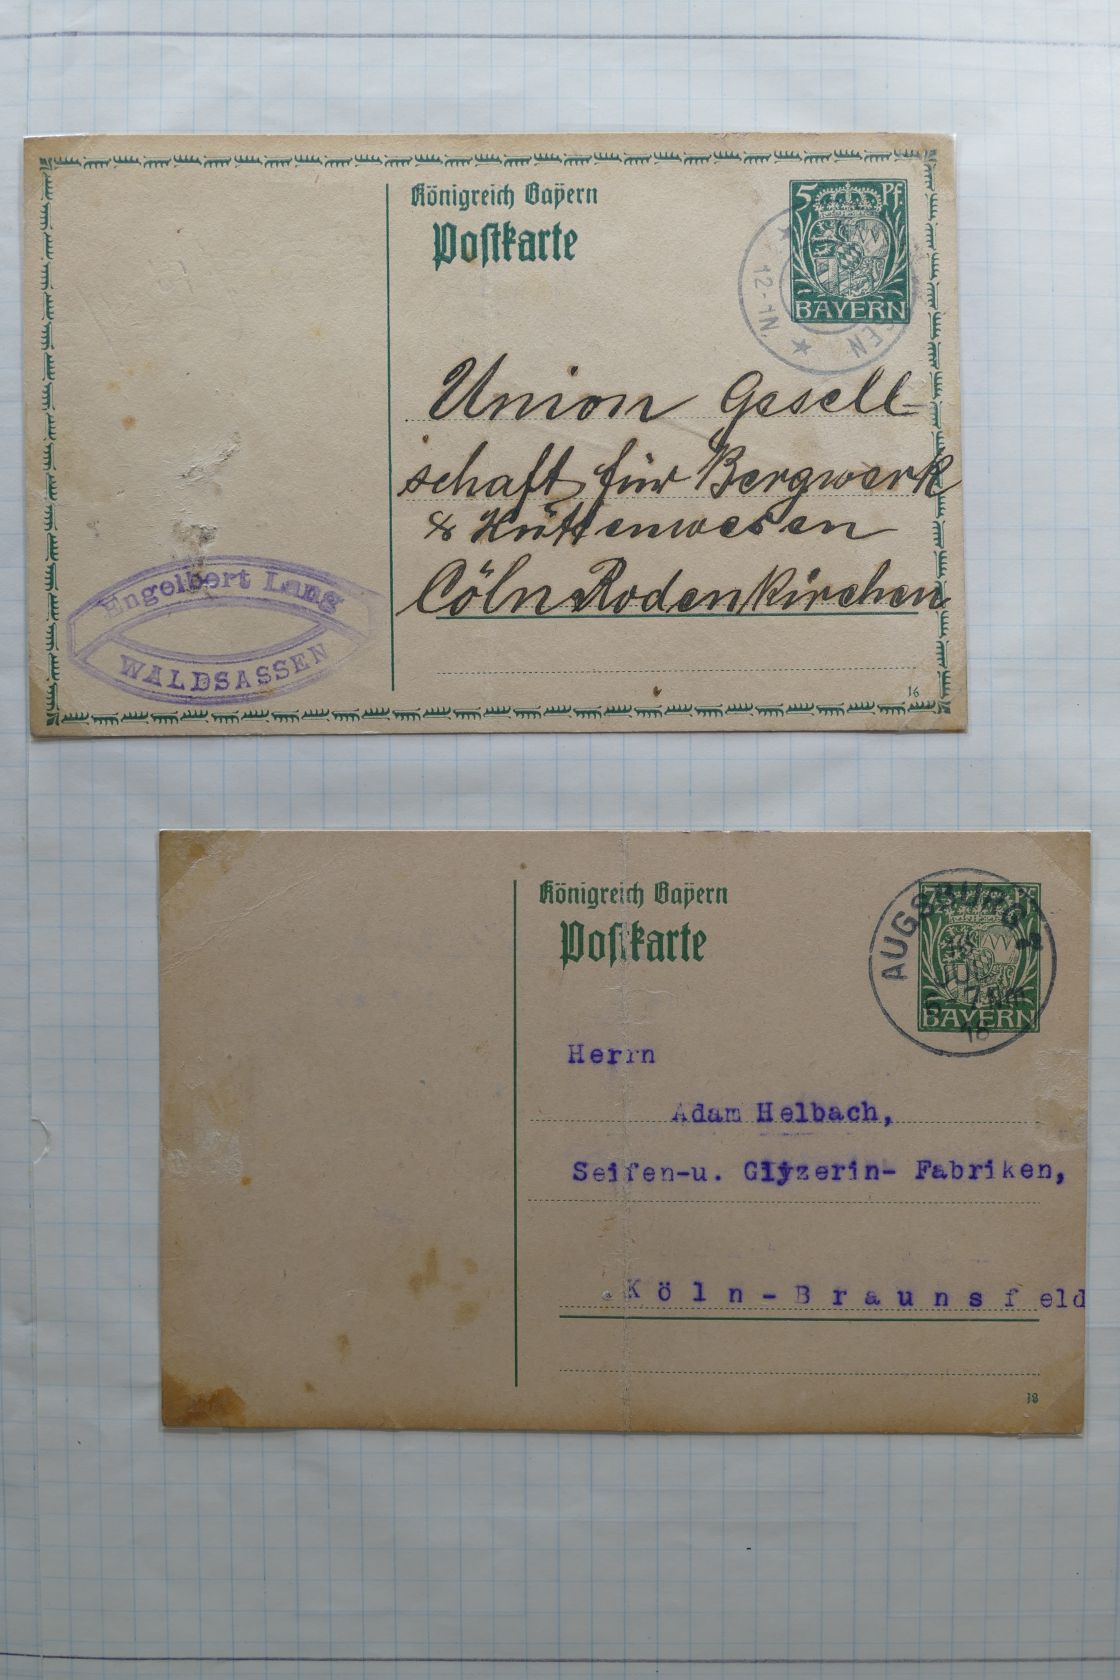 Königreich Bayern
Postkarte
5 Pf.
BAYERN
12-1N.
Union Gesell-
schaft für Bergwerk
& Hüttenwesen
Cöln Rodenkirchen
Engelbert Lang
WALDSASSEN
16
Königreich Bayern
Postkarte
Pf.
BAYERN
AUGSBURG 2
16
Herrn
Adam Helbach,
Seifen-u. Glyzerin- Fabriken,
Köln-Braunsfeld
18